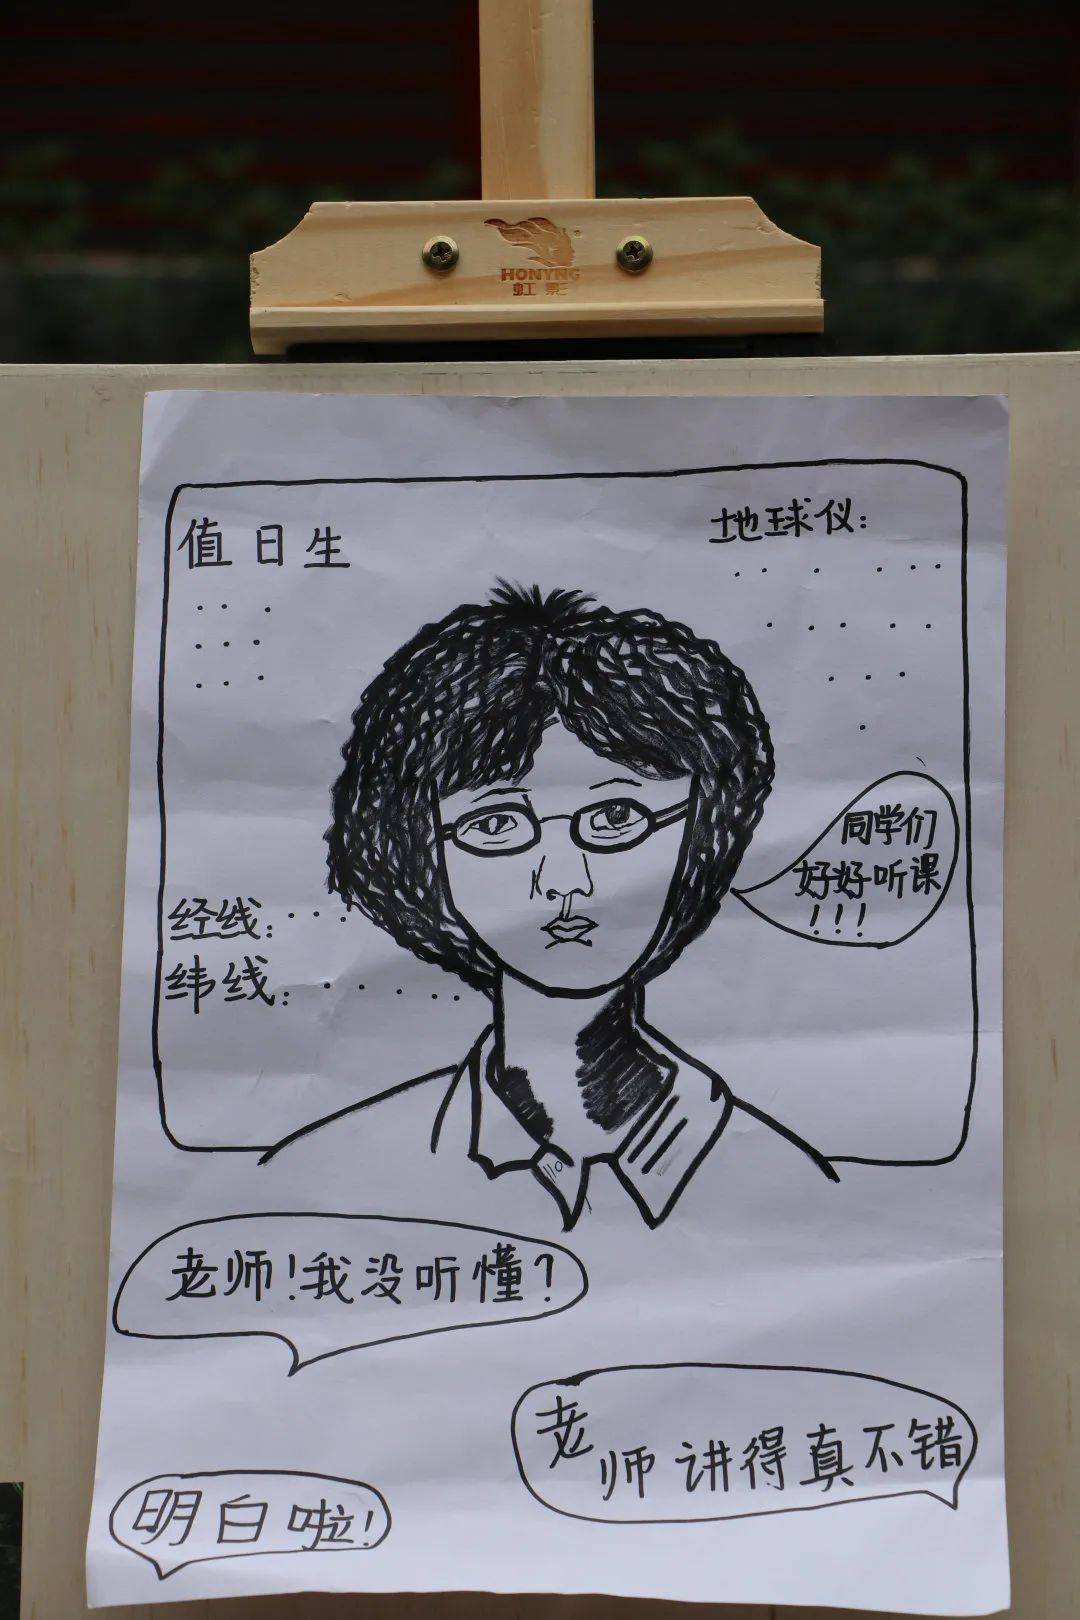 HONYNG
虹影
值日生
地球仪:
同学们
好好听课
!!!
经线:
纬线:
老师!我没听懂?
老师讲得真不错
明白啦!